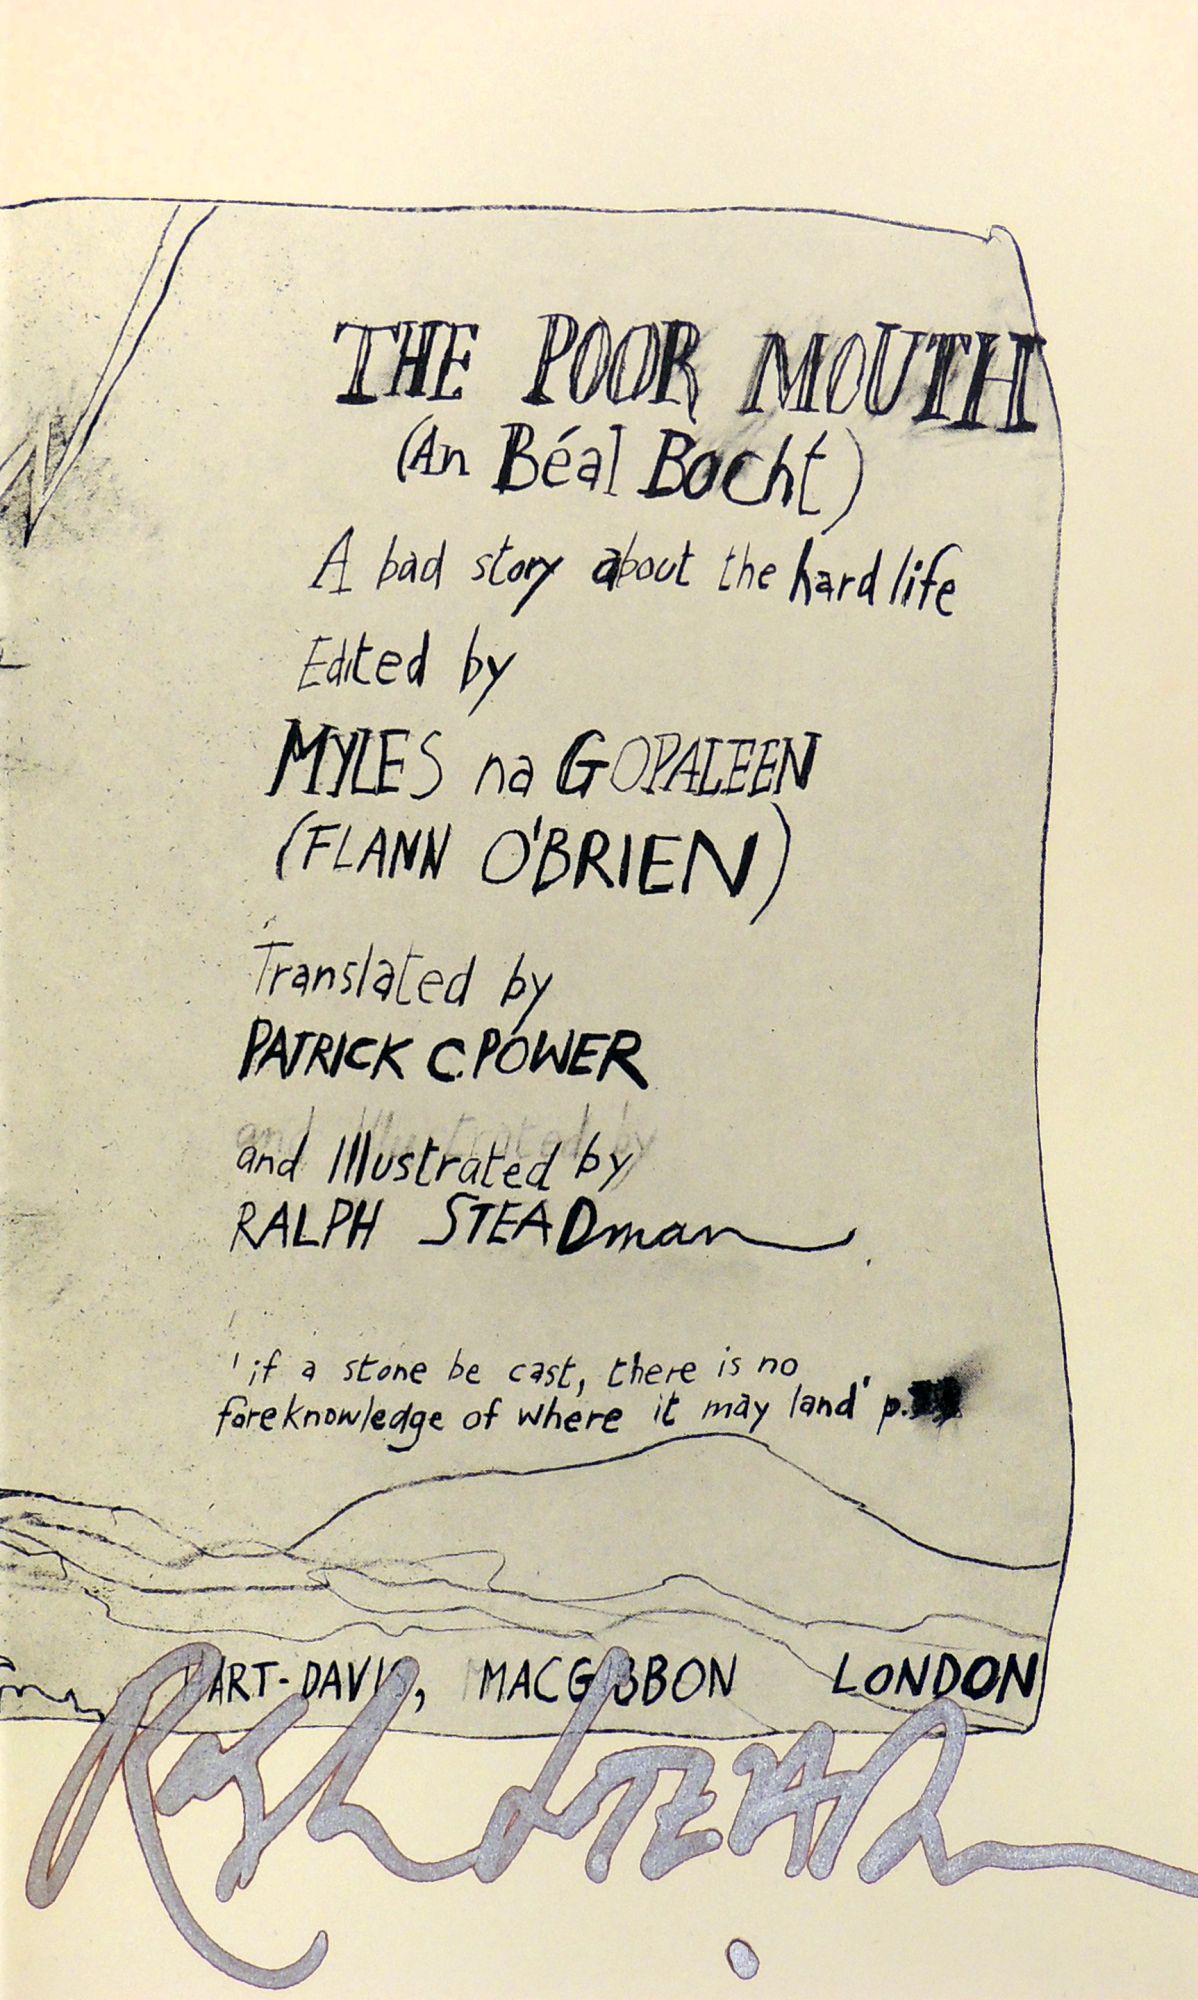 THE POOR MOUTH
(An Béal Bocht)
A bad story about the hard life
Edited by
MYLES na GOPALEEN
(FLANN O'BRIEN)
Translated by
PATRICK C. POWER
and Illustrated by
RALPH STEADman
'if a stone be cast, there is no
foreknowledge of where it may land' p.
HART-DAVIS, MACGIBBON LONDON
Ralph STEADman